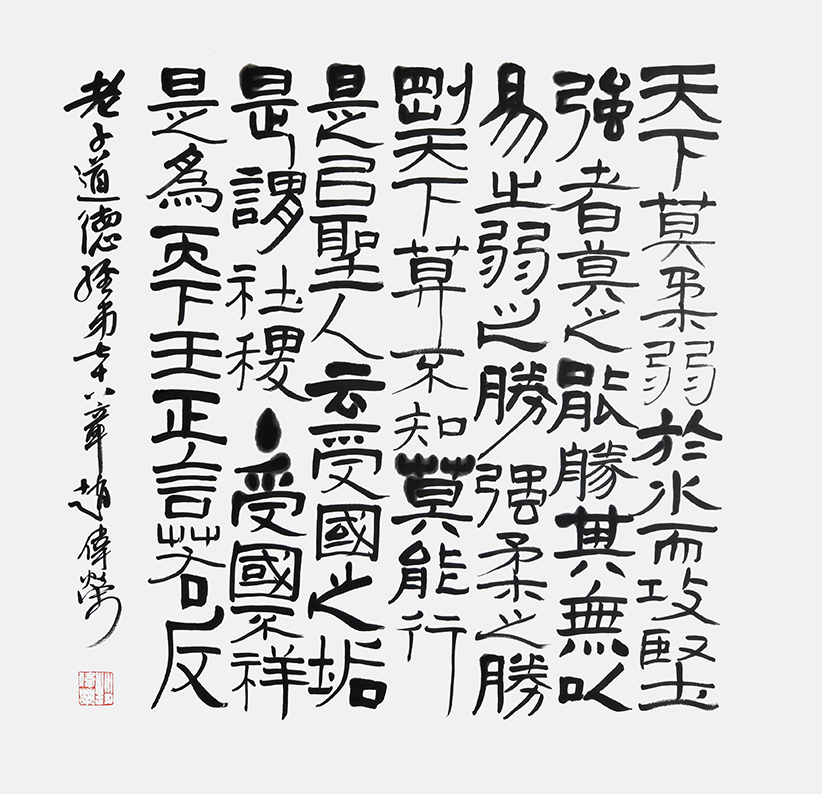 天下莫柔弱於水而攻堅
強者莫之能勝其無以
易之弱之勝强柔之勝
剛天下莫不知莫能行
是以聖人云受國之垢
是謂社稷主受國不祥
是為天下王正言若反
老子道德經第七十八章趙偉榮